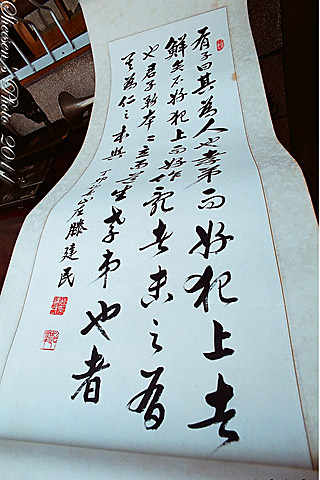 有子曰其為人也孝弟而好犯上者
鮮矣不好犯上而好作亂者未之有
也君子務本二立而道生孝弟也者
其為仁之本與
滕建民
Photo 2011